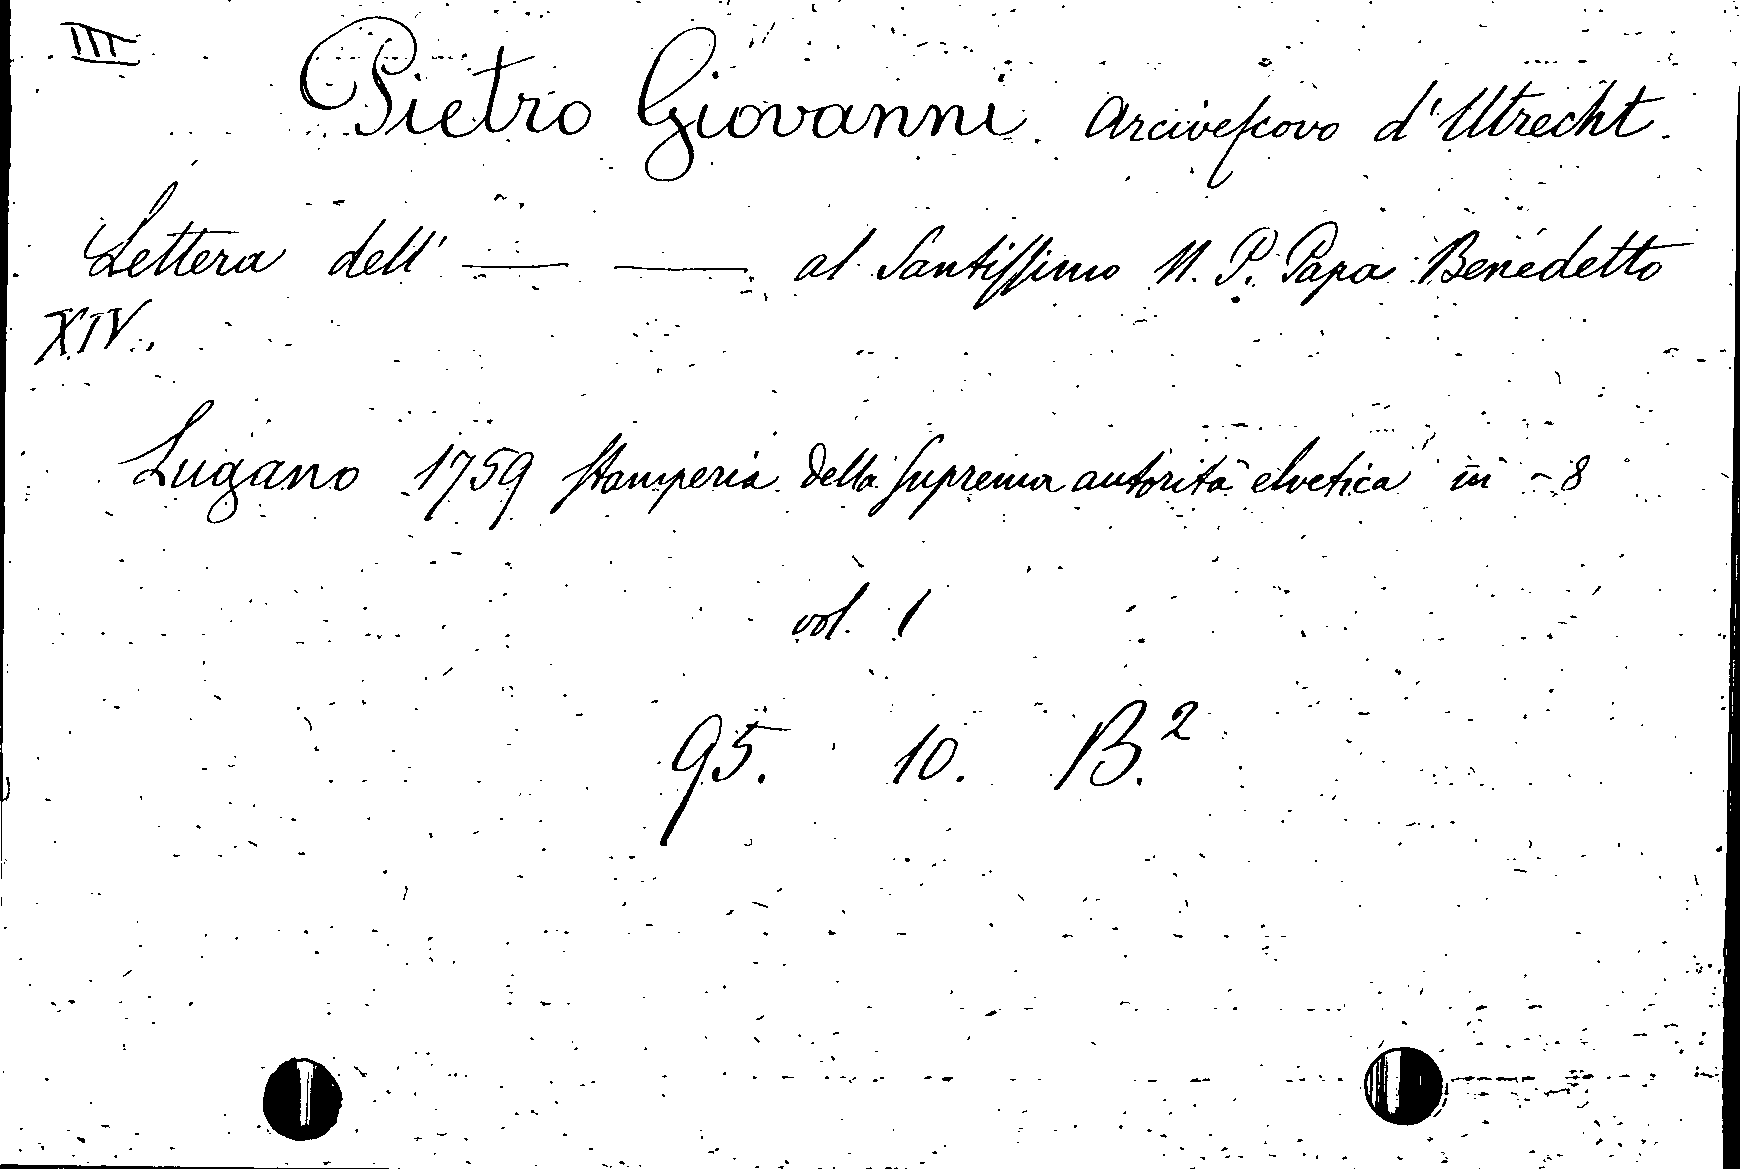 III
Pietro Giovanni. Arciveſcovo d'Utrecht.
Lettera dell' — — al Santiſſimo N. P. Papa Benedetto
XIV.
Lugano 1759 Stamperia della Suprema autorità elvetica in - 8
vol. 1
95. 10. B.²